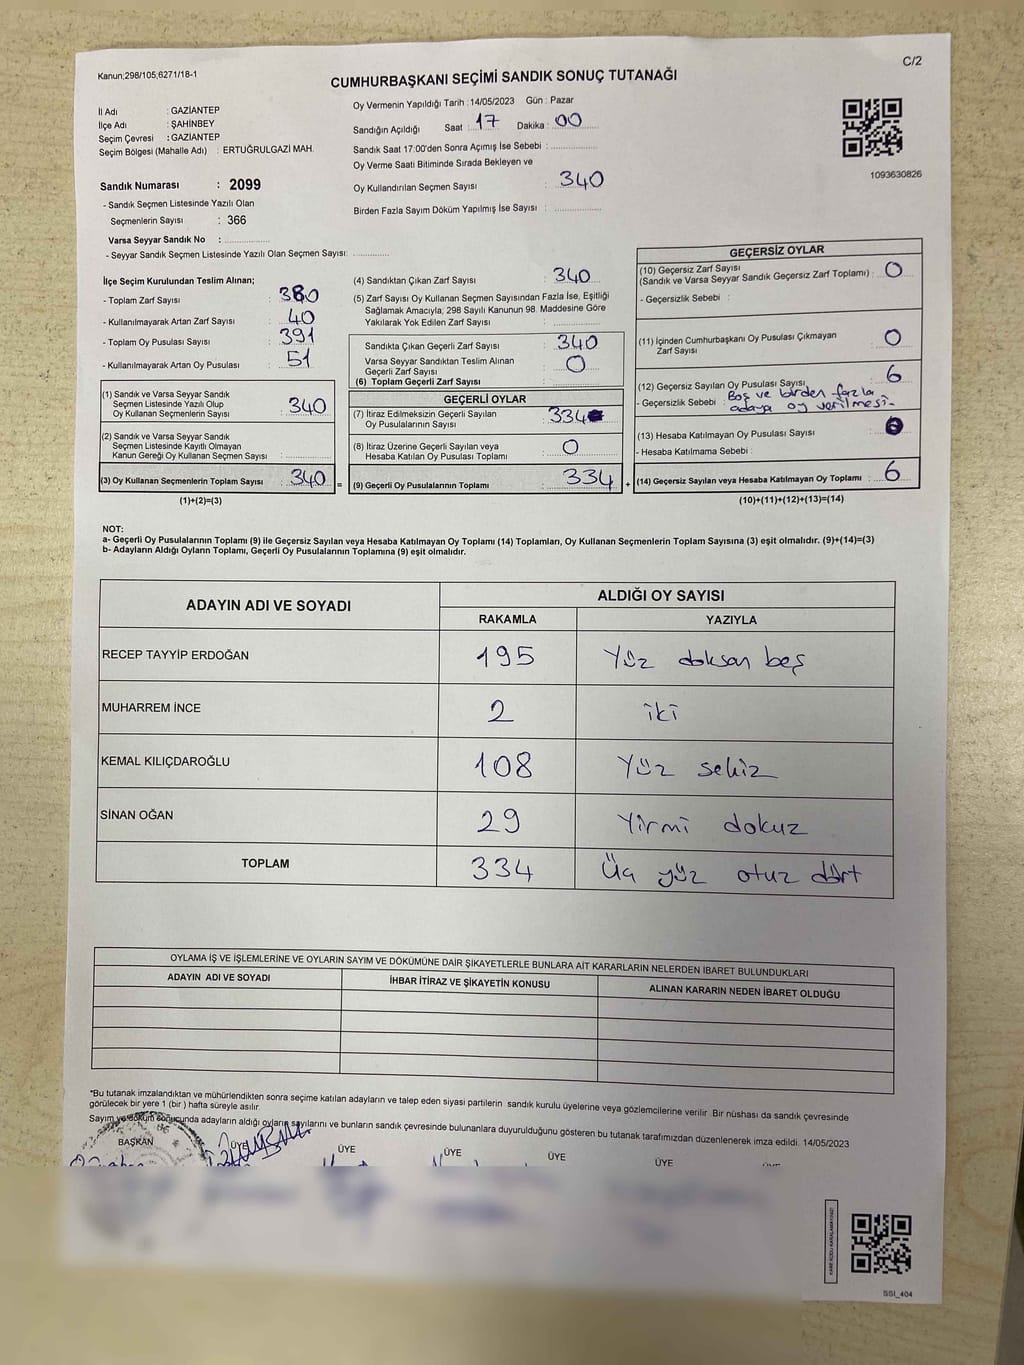 Kanun;298/105,6271/18-1
C/2
CUMHURBAŞKANI SEÇİMİ SANDIK SONUÇ TUTANAĞI
İl Adı : GAZİANTEP
İlçe Adı : ŞAHİNBEY
Seçim Çevresi : GAZİANTEP
Seçim Bölgesi (Mahalle Adı) : ERTUĞRULGAZİ MAH.
Oy Vermenin Yapıldığı Tarih : 14/05/2023 Gün : Pazar
Sandığın Açıldığı Saat : 17 Dakika : 00
Sandık Saat 17:00'den Sonra Açımış İse Sebebi :
Oy Verme Saati Bitiminde Sırada Bekleyen ve
Oy Kullandırılan Seçmen Sayısı : 340
Birden Fazla Sayım Döküm Yapılmış İse Sayısı :
1093630826
Sandık Numarası : 2099
- Sandık Seçmen Listesinde Yazılı Olan
Seçmenlerin Sayısı : 366
Varsa Seyyar Sandık No :
- Seyyar Sandık Seçmen Listesinde Yazılı Olan Seçmen Sayısı:
İlçe Seçim Kurulundan Teslim Alınan;
- Toplam Zarf Sayısı : 380
- Kullanılmayarak Artan Zarf Sayısı : 40
- Toplam Oy Pusulası Sayısı : 391
- Kullanılmayarak Artan Oy Pusulası : 51
(1) Sandık ve Varsa Seyyar Sandık
Seçmen Listesinde Yazılı Olup
Oy Kullanan Seçmenlerin Sayısı : 340
(2) Sandık ve Varsa Seyyar Sandık
Seçmen Listesinde Kayıtlı Olmayan
Kanun Gereği Oy Kullanan Seçmen Sayısı :
(3) Oy Kullanan Seçmenlerin Toplam Sayısı : 340 =
(1)+(2)=(3)
(4) Sandıktan Çıkan Zarf Sayısı : 340
(5) Zarf Sayısı Oy Kullanan Seçmen Sayısından Fazla İse, Eşitliği
Sağlamak Amacıyla, 298 Sayılı Kanunun 98. Maddesine Göre
Yakılarak Yok Edilen Zarf Sayısı :
Sandıkta Çıkan Geçerli Zarf Sayısı : 340
Varsa Seyyar Sandıktan Teslim Alınan
Geçerli Zarf Sayısı : 0
(6) Toplam Geçerli Zarf Sayısı :
GEÇERLİ OYLAR
(7) İtiraz Edilmeksizin Geçerli Sayılan
Oy Pusulalarının Sayısı : 334
(8) İtiraz Üzerine Geçerli Sayılan veya
Hesaba Katılan Oy Pusulası Toplamı : 0
(9) Geçerli Oy Pusulalarının Toplamı : 334 +
GEÇERSİZ OYLAR
(10) Geçersiz Zarf Sayısı
(Sandık ve Varsa Seyyar Sandık Geçersiz Zarf Toplamı) : 0
- Geçersizlik Sebebi :
(11) İçinden Cumhurbaşkanı Oy Pusulası Çıkmayan
Zarf Sayısı : 0
(12) Geçersiz Sayılan Oy Pusulası Sayısı : 6
- Geçersizlik Sebebi : Boş ve birden fazla
adaya oy verilmesi.
(13) Hesaba Katılmayan Oy Pusulası Sayısı : 0
- Hesaba Katılmama Sebebi :
(14) Geçersiz Sayılan veya Hesaba Katılmayan Oy Toplamı : 6
(10)+(11)+(12)+(13)=(14)
NOT:
a- Geçerli Oy Pusulalarının Toplamı (9) ile Geçersiz Sayılan veya Hesaba Katılmayan Oy Toplamı (14) Toplamları, Oy Kullanan Seçmenlerin Toplam Sayısına (3) eşit olmalıdır. (9)+(14)=(3)
b- Adayların Aldığı Oyların Toplamı, Geçerli Oy Pusulalarının Toplamına (9) eşit olmalıdır.
ADAYIN ADI VE SOYADI ALDIĞI OY SAYISI
RAKAMLA YAZIYLA
RECEP TAYYİP ERDOĞAN 195 Yüz doksan beş
MUHARREM İNCE 2 iki
KEMAL KILIÇDAROĞLU 108 Yüz sekiz
SİNAN OĞAN 29 Yirmi dokuz
TOPLAM 334 Üç yüz otuz dört
OYLAMA İŞ VE İŞLEMLERİNE VE OYLARIN SAYIM VE DÖKÜMÜNE DAİR ŞİKAYETLERLE BUNLARA AİT KARARLARIN NELERDEN İBARET BULUNDUKLARI
ADAYIN ADI VE SOYADI İHBAR İTİRAZ VE ŞİKAYETİN KONUSU ALINAN KARARIN NEDEN İBARET OLDUĞU
*Bu tutanak imzalandıktan ve mühürlendikten sonra seçime katılan adayların ve talep eden siyasi partilerin sandık kurulu üyelerine veya gözlemcilerine verilir. Bir nüshası da sandık çevresinde
görülecek bir yere 1 (bir ) hafta süreyle asılır.
Sayım ve döküm sonucunda adayların aldığı oyların sayılarını ve bunların sandık çevresinde bulunanlara duyurulduğunu gösteren bu tutanak tarafımızdan düzenlenerek imza edildi. 14/05/2023
BAŞKAN ÜYE ÜYE ÜYE ÜYE ÜYE
SSI_404